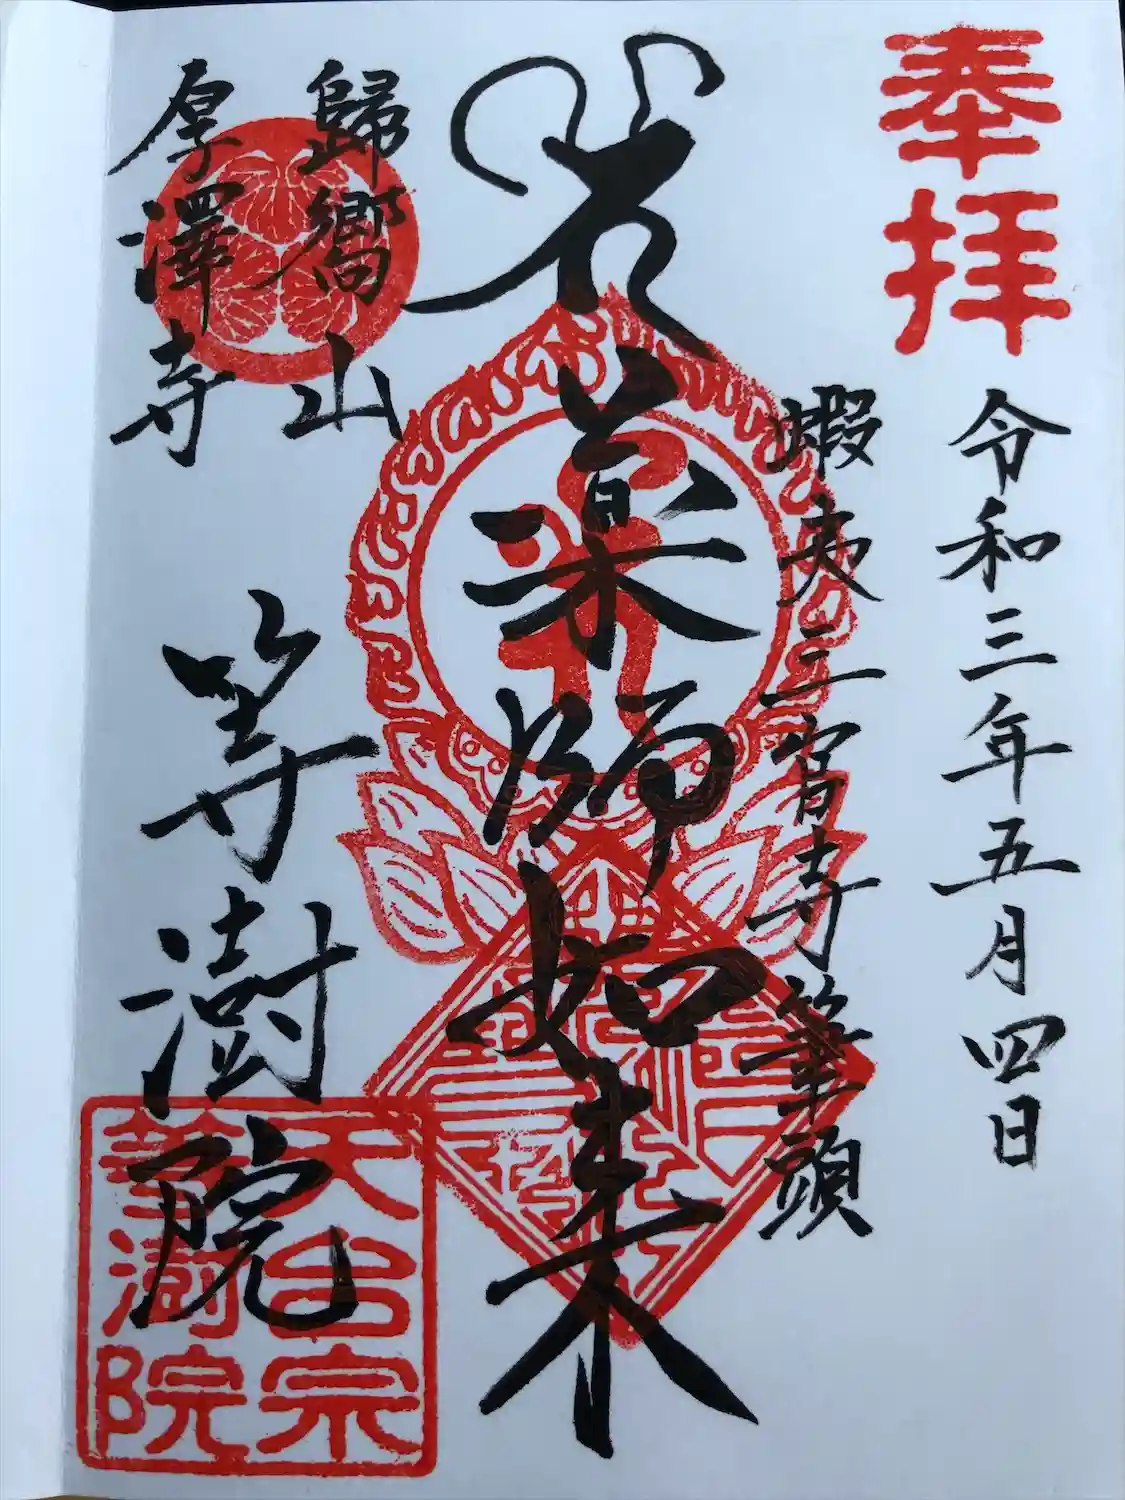 奉拝
令和三年五月四日
蝦夷三官寺筆頭
薬師如来
歸嚮山
厚澤寺
等澍院
天台宗
等澍院